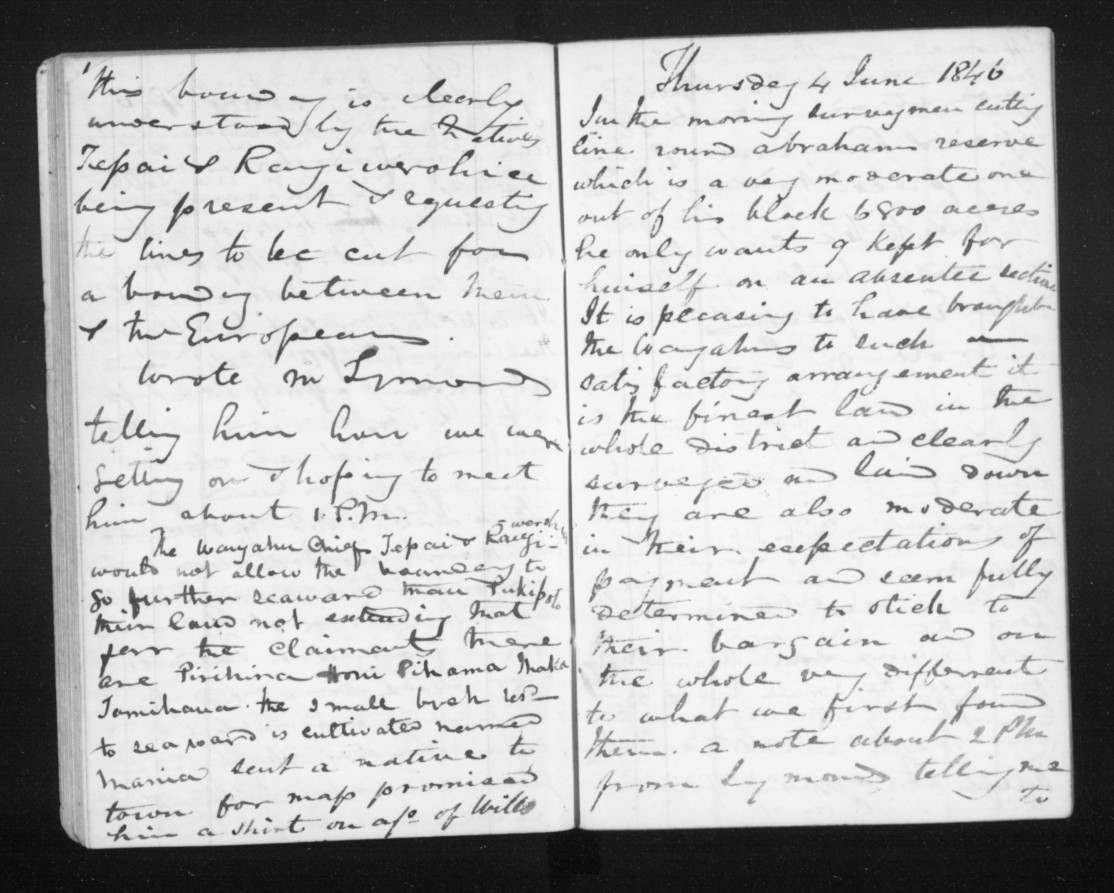 this boundary is clearly
understood by the Natives
Tepai & Rangiwerohia
being present & requesting
the lines to be cut for
a boundy between them
& the Europeans.
Wrote Mr Symonds
telling him how we were
getting on & hoping to meet
him about 1. P.M.
The Wangahu Chiefs Tepai & Rangi
werohia
would not allow the boundary to
go further seaward than Pukipoto
their land not extending that
far the claimants there
are Pirihina Honi Pihama Ihaka
Tamihana. the small bush
to seaward is cultivated named
Mania sent a native to
town for map promised
him a shirt on a/c of Wills
Thursday 4 June 1846
In the morning surveymen cuting
line round abrahams reserve
which is a vey moderate one
out of his block 6800 accres
he only wants 9 kept for
himself on an absentee section
It is pleasing to have brought
the Wangahus to such
satisfactory arrangement it
is the finest land in the
whole district and clearly
surveyed and laid down
they are also moderate
in their expectations of
payment and seem fully
determined to stick to
their bargain and on
the whole very different
to what we first found
them. a note about 2 PM
from Symonds telling me
to